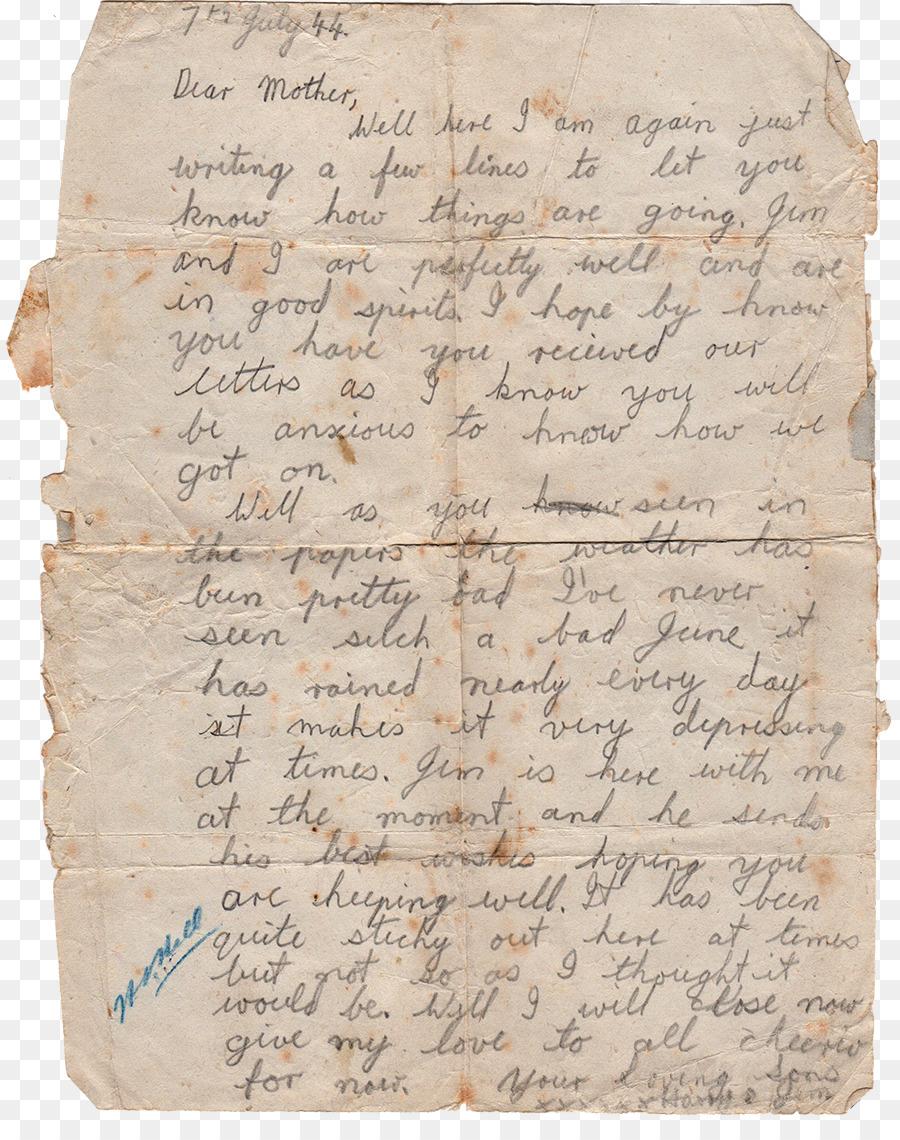 7th July 44.
Dear Mother,
Well here I am again just
writing a few lines to let you
know how things are going. Jim
and I are perfectly well and are
in good spirits. I hope by know
you have you recieved our
letters as I know you will
be anxious to know how we
got on.
Well as you know seen in
the papers the weather has
been pretty bad I've never
seen such a bad June it
has rained nearly every day
it makes it very depressing
at times. Jim is here with me
at the moment and he sends
his best wishes hoping you
are keeping well. It has been
quite sticky out here at times
but not so as I thought it
would be. Well I will close now
give my love to all cheerio
for now. Your loving sons
xxxxxx Harry & Jim